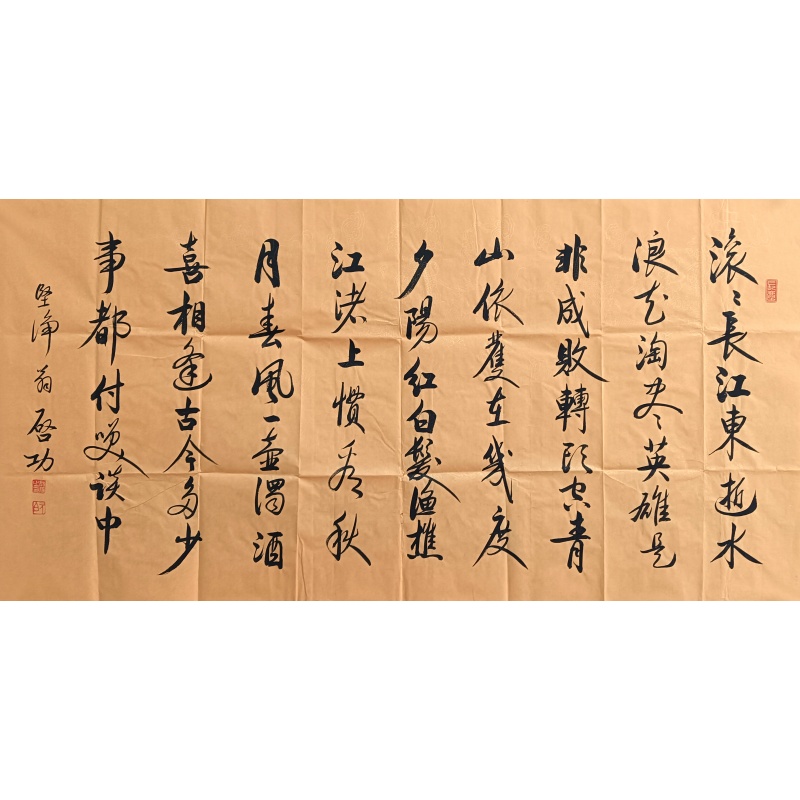 滚〻長江東逝水
浪花淘尽英雄是
非成敗轉頭空青
山依舊在幾度
夕陽紅白髮渔樵
江渚上慣看秋
月春風一壺濁酒
喜相逢古今多少
事都付笑談中
坚净翁启功